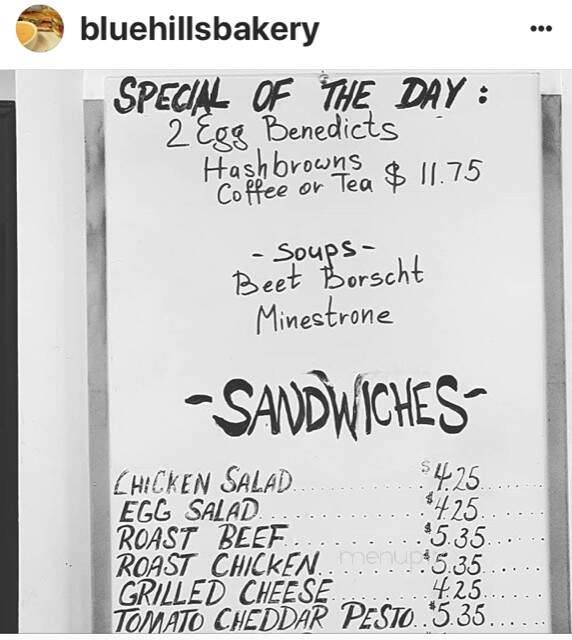 bluehillsbakery
SPECIAL OF THE DAY:
2 Egg Benedicts
Hashbrowns
Coffee or Tea $ 11.75
- Soups -
Beet Borscht
Minestrone
- SANDWICHES -
CHICKEN SALAD............$4.25.......
EGG SALAD............$4.25.......
ROAST BEEF............$5.35.......
ROAST CHICKEN............$5.35.......
GRILLED CHEESE............4.25.......
TOMATO CHEDDAR PESTO..$5.35......